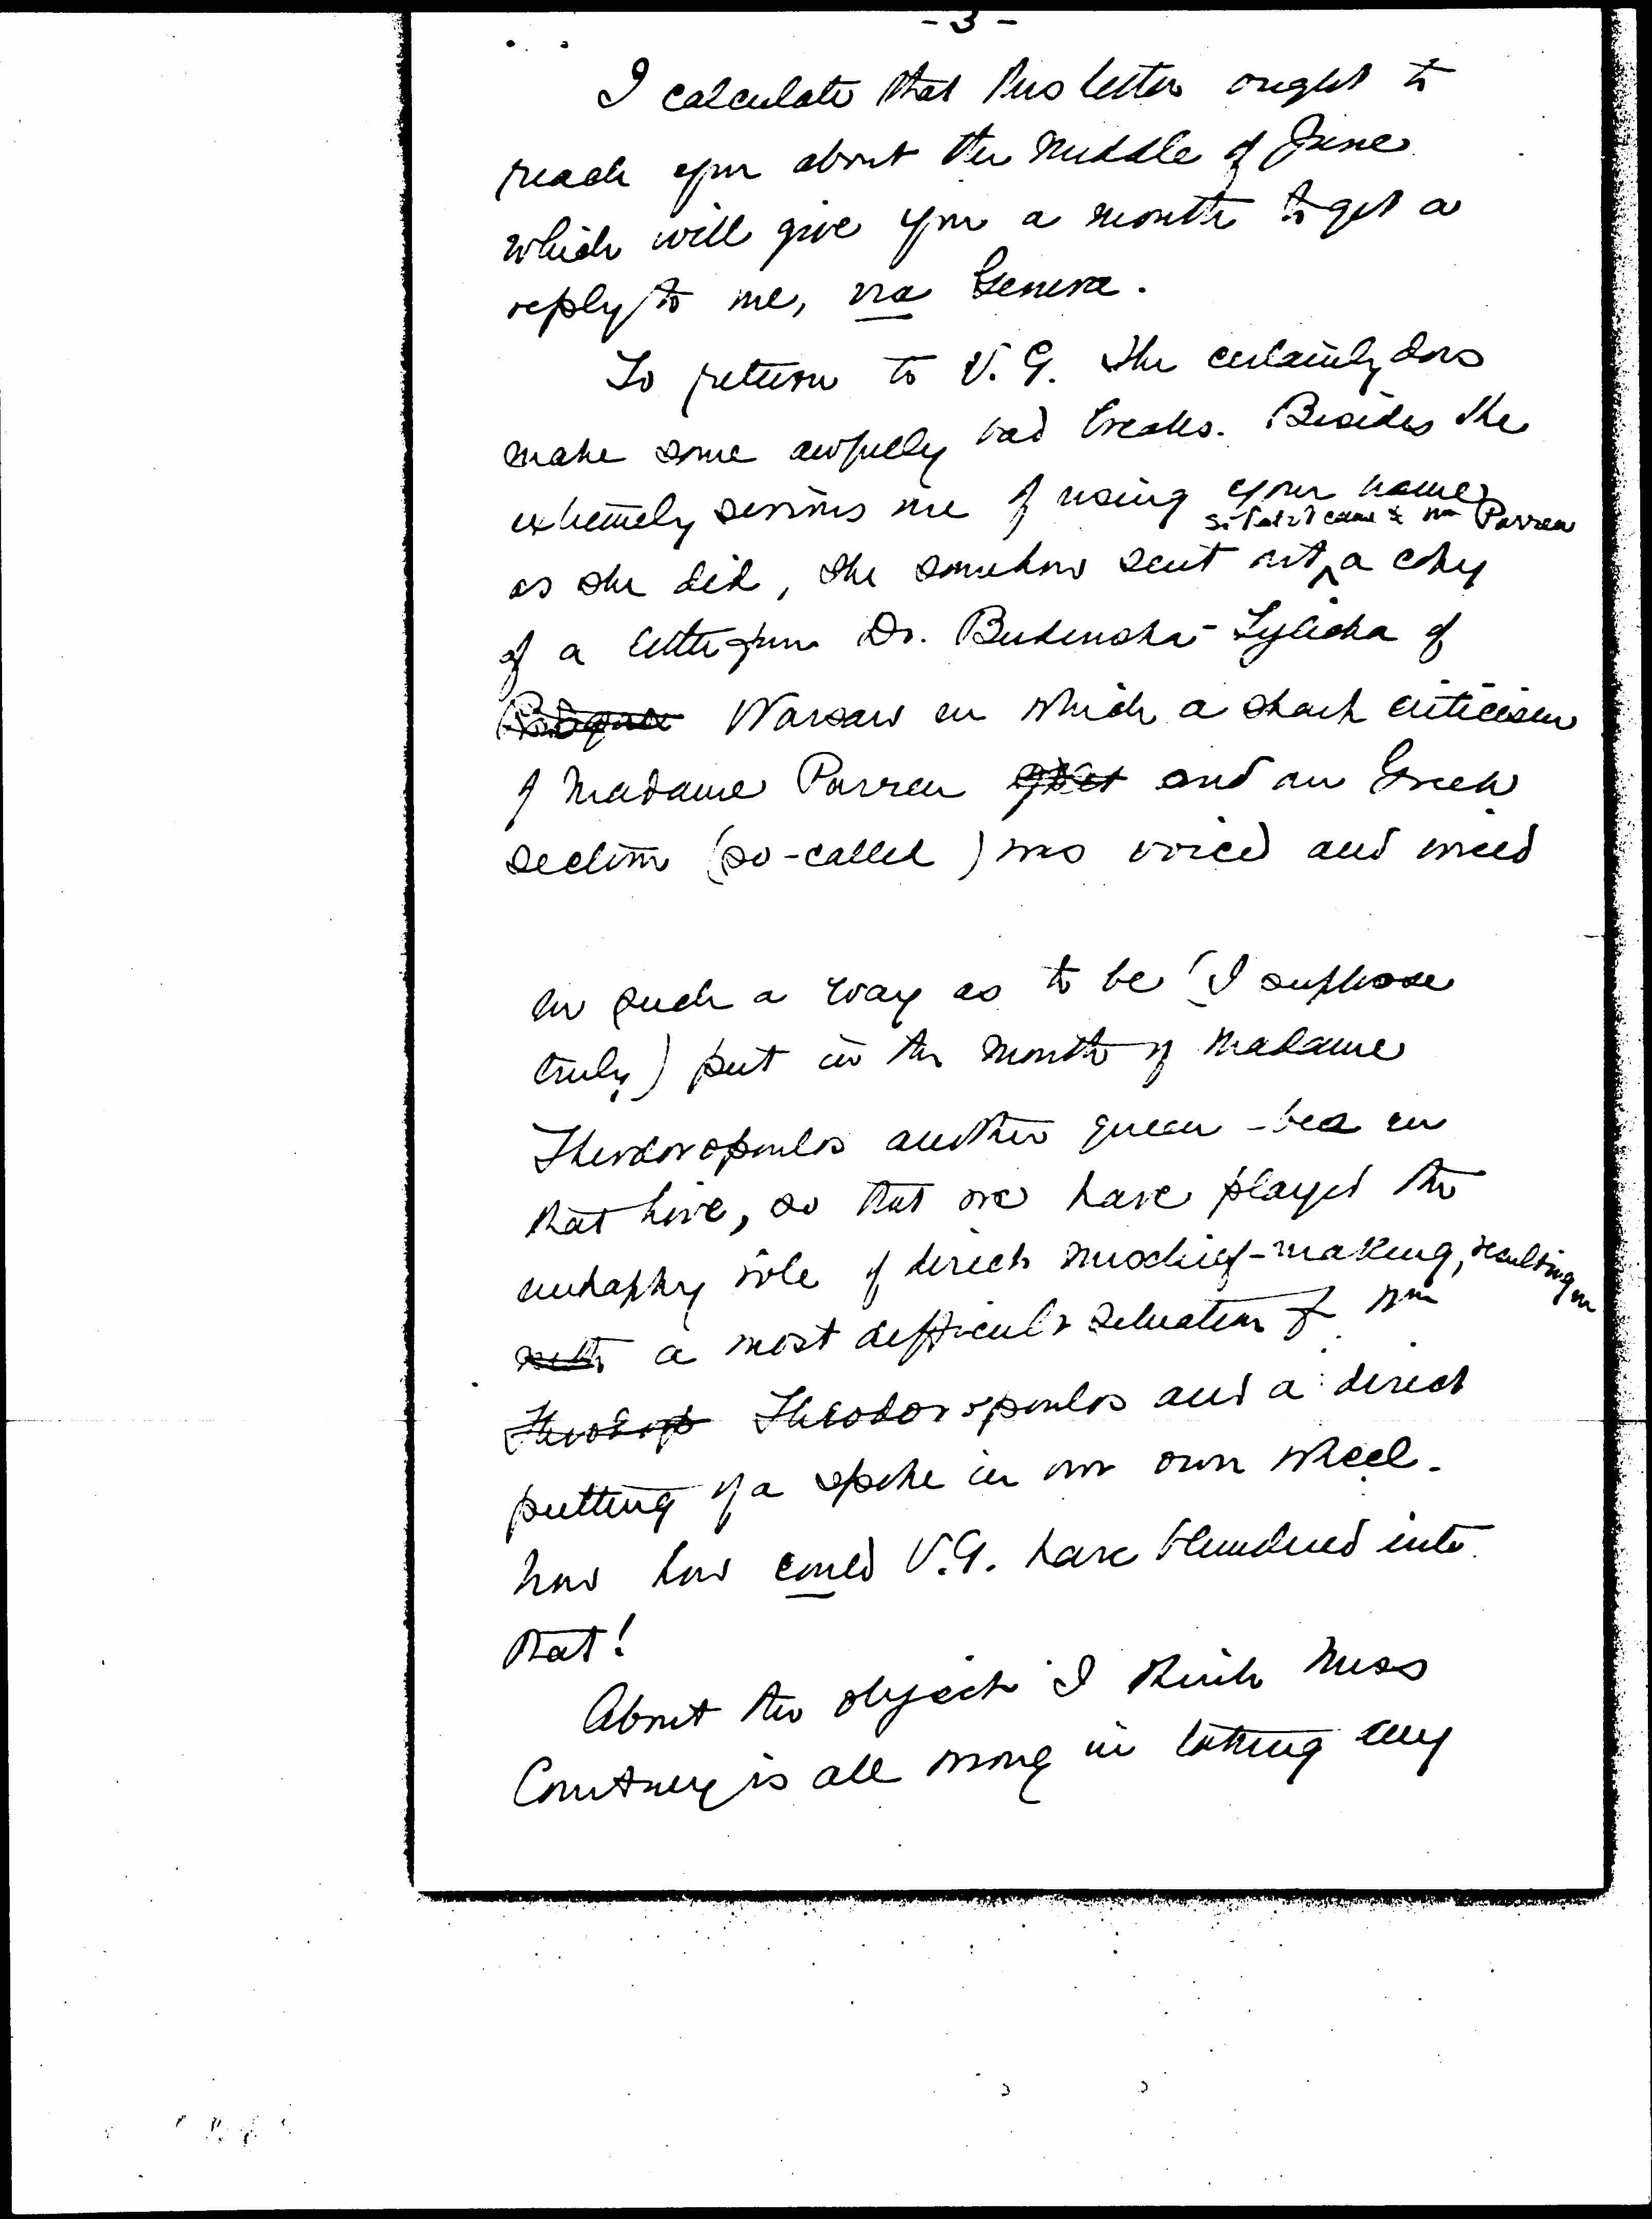 - 3 -
I calculate that this letter ought to
reach you about the middle of June
which will give you a month to get a
reply to me, via Geneva.
To return to V. G. She certainly does
make some awfully bad breaks. Besides the
extremely serious one of using your name
so that it came to Mme Parren
as she did, she somehow sent out a copy
of a letter from Dr. Budzinska-Tylicka of
Warsaw in which a sharp criticism
of Madame Parren and our Greek
section (so-called) was voiced and voiced
in such a way as to be (I suppose
truly) put in the mouth of Madame
Theodoropoulos another queen-bee in
that hive, so that we have played the
unhappy rôle of direct mischief-making, resulting in
with a most difficult situation for Mme
Theodoropoulos and a direct
putting of a spoke in our own wheel.
Now how could V.G. have blundered into
that!
About the objects I think Miss
Courtney is all wrong in taking any